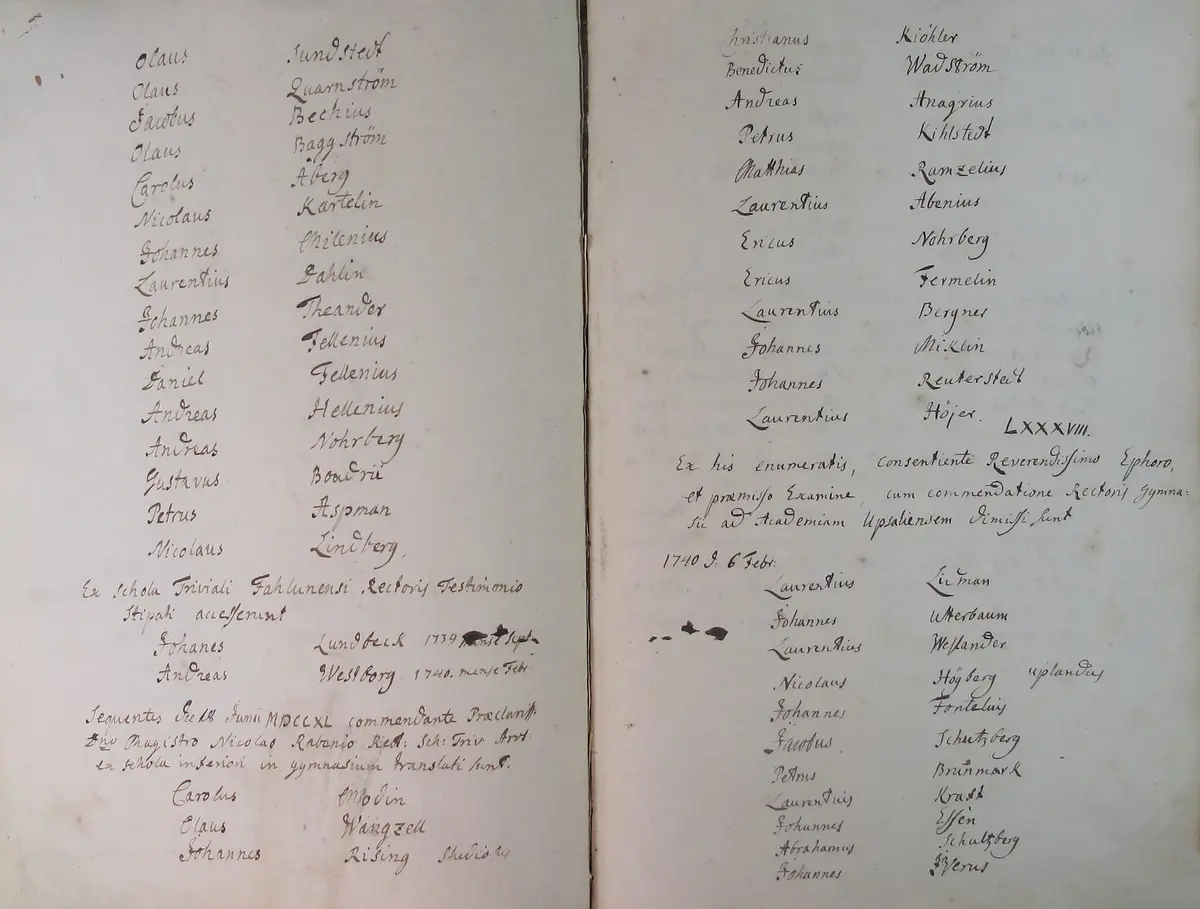 Olaus Sundstedt
Olaus Quarnström
Jacobus Bechius
Olaus Baggström
Carolus Åberg
Nicolaus Kartelin
Johannes Milenius
Laurentius Dahlin
Johannes Theander
Andreas Fellenius
Daniel Fellenius
Andreas Hellenius
Andreas Nohrberg
Gustavus Boudrii
Petrus Aspman
Nicolaus Lindberg.
Ex Schola Triviali Fahlunensi Rectoris Testimonio
stipati accesserunt
Johanes Lundbeck 1739 mense Sept.
Andreas Westborg 1740. mense Febr
Sequentes die 18 Junii MDCCXL commendante Præclariss.
Dno Magistro Nicolao Rabenio Rect: Sch: Triv Aros
ex schola inferiori in gymnasium translati sunt.
Carolus Modin
Olaus Wångzell
Johannes Rising
Christianus Kiöhler
Benedictus Wadström
Andreas Anagrius
Petrus Kihlstedt
Matthias Ramzelius
Laurentius Abenius
Ericus Nohrberg
Ericus Fermelin
Laurentius Bergner
Johannes Miklin
Johannes Reuterstedt
Laurentius Höjer.
LXXXVIII.
Ex his enumeratis, consentiente Reverendissimo Ephoro,
et præmisso Examine, cum commendatione Rectoris Gymna-
sii ad Academiam Upsaliensem dimissi sunt
1740 d. 6 Febr:
Laurentius Lidman
Johannes Utterbaum
Laurentius Weslander
Nicolaus Högberg uplandus
Johannes Fontelius
Jacobus Schutzberg
Petrus Brunmark
Laurentius Kraft
Johannes Essén
Abrahamus Schultzberg
Johannes